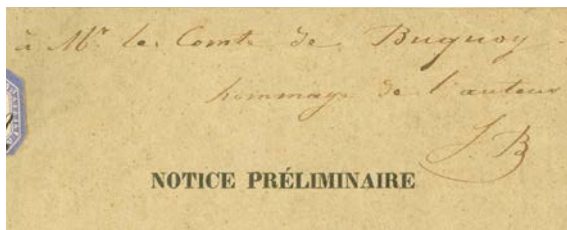 à Mr le Comte de Buquoy
hommage de l'auteur
J. B
NOTICE PRÉLIMINAIRE